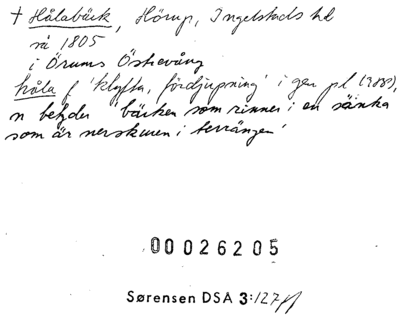 † Hålabäck, Hörup, Ingelstads hd
rå 1805
i Örums Östrevång
håla f 'klyfta, fördjupning' i gen pl (),
n betyder 'bäcken som rinner i en sänka
som är nerskuren i terrängen'
00026205
Sørensen DSA 3:127ff